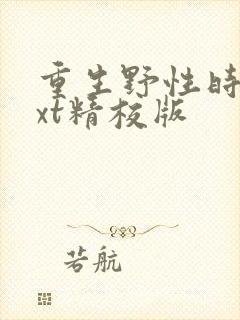 重生野性时
xt精校版
若航